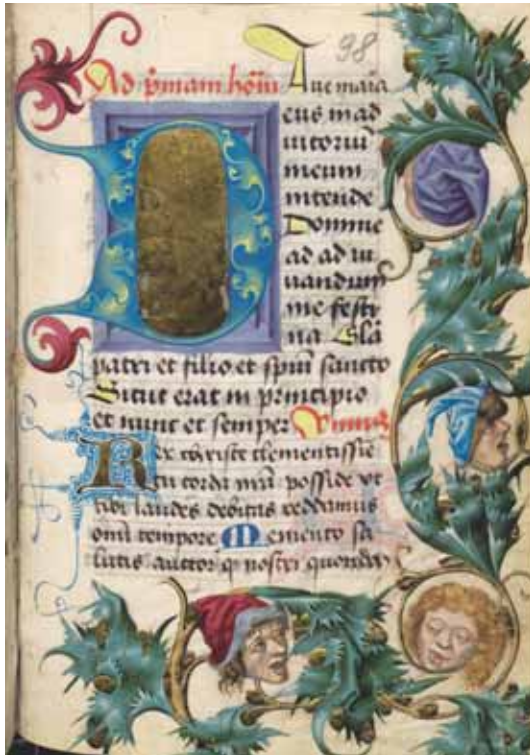 98
Ad p̄mam hoꝝ Aue maria
eus in ad
iutoriū
meum
intende
Domine
ad ad iu
uandum
me festi
na Glā
patri et filio et spiū sancto
Sicut erat in principio
et nunc et semper
ex christe clementissie
tu corda nrā posside vt
tibi laudes debitas reddamus
om̄i tempore Memento sa
lutis auctor q̄ nostri quonda